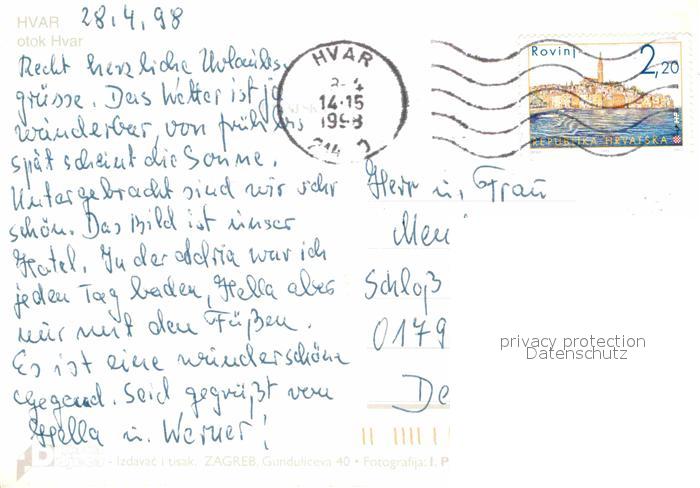 HVAR
otok Hvar
28.4.98
Recht herzliche Urlaubs-
grüsse. Das Wetter ist ja
wunderbar, von früh bis
spät scheint die Sonne.
Untergebracht sind wir sehr
schön. Das Bild ist unser
Hotel. In der Adria war ich
jeden Tag baden, Hella aber
nur mit den Füßen.
Es ist eine wunderschöne
Gegend. Seid gegrüßt von
Hella u. Werner!
HVAR
14-15
1998
Rovinj
2,20
REPUBLIKA HRVATSKA
Herr u. Frau
Schloß
0179
De
privacy protection
Datenschutz
- Izdavač i tisak, ZAGREB, Gundulićeva 40 • Fotografija: I. P